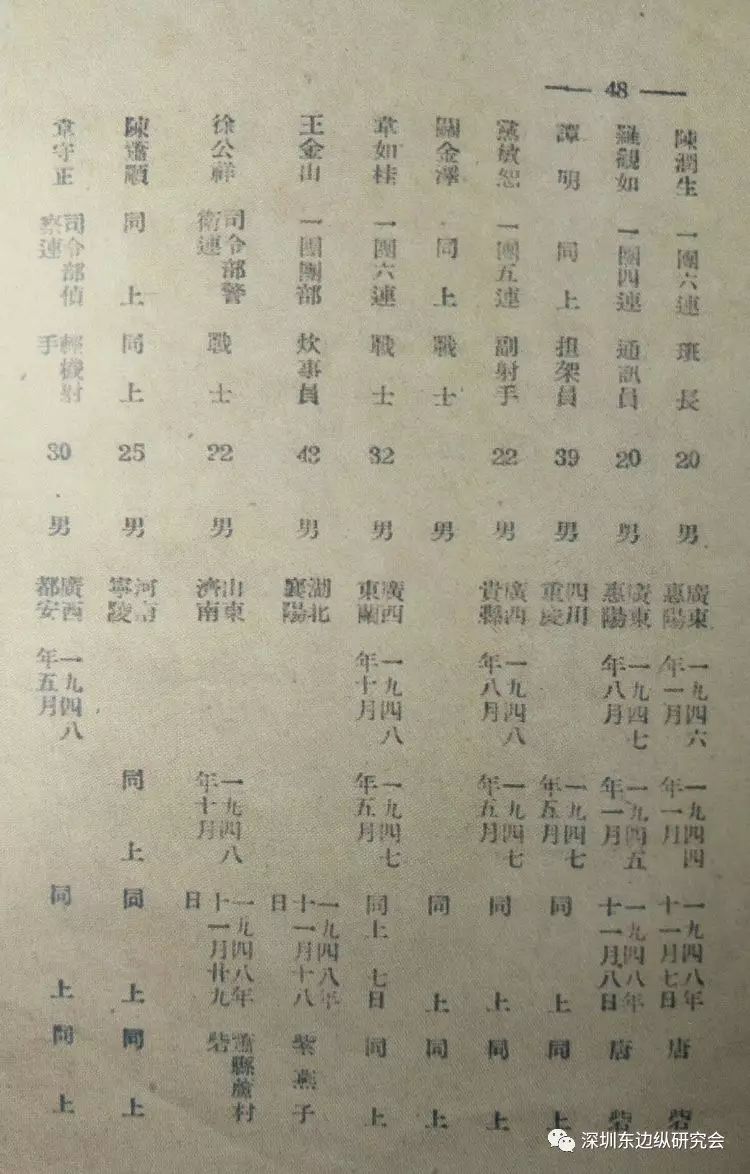 — 48 —
陳潤生 一團六連 班長 20 男 廣東惠陽 一九四六年一月 一九四四年一月 一九四八年十一月七日 唐砦
羅觀如 一團四連 通訊員 20 男 廣東惠陽 一九四七年八月 一九四五年一月 一九四八年十一月八日 唐砦
譚明 同上 担架員 39 男 四川重慶 一九四七年五月 同上 同上
黨敏恕 一團五連 副射手 22 男 廣西貴縣 一九四八年八月 一九四七年五月 同上 同上
關金澤 同上 戰士 男 同上 同上
韋如桂 一團六連 戰士 32 男 廣西東蘭 一九四八年十月 一九四七年五月 同上七日 同上
王金山 一團團部 炊事員 43 男 湖北襄陽 一九四八年十一月十八日 紫燕子
徐公祥 司令部警衛連 戰士 22 男 山東濟南 一九四八年十月 一九四八年十一月廿九日 蕭縣蘆村砦
陳蕭順 同上 同上 25 男 河南寧陵 同上 同上 同上
韋守正 司令部偵察連 輕機射手 30 男 廣西都安 一九四八年五月 同上 同上
深圳东边纵研究会